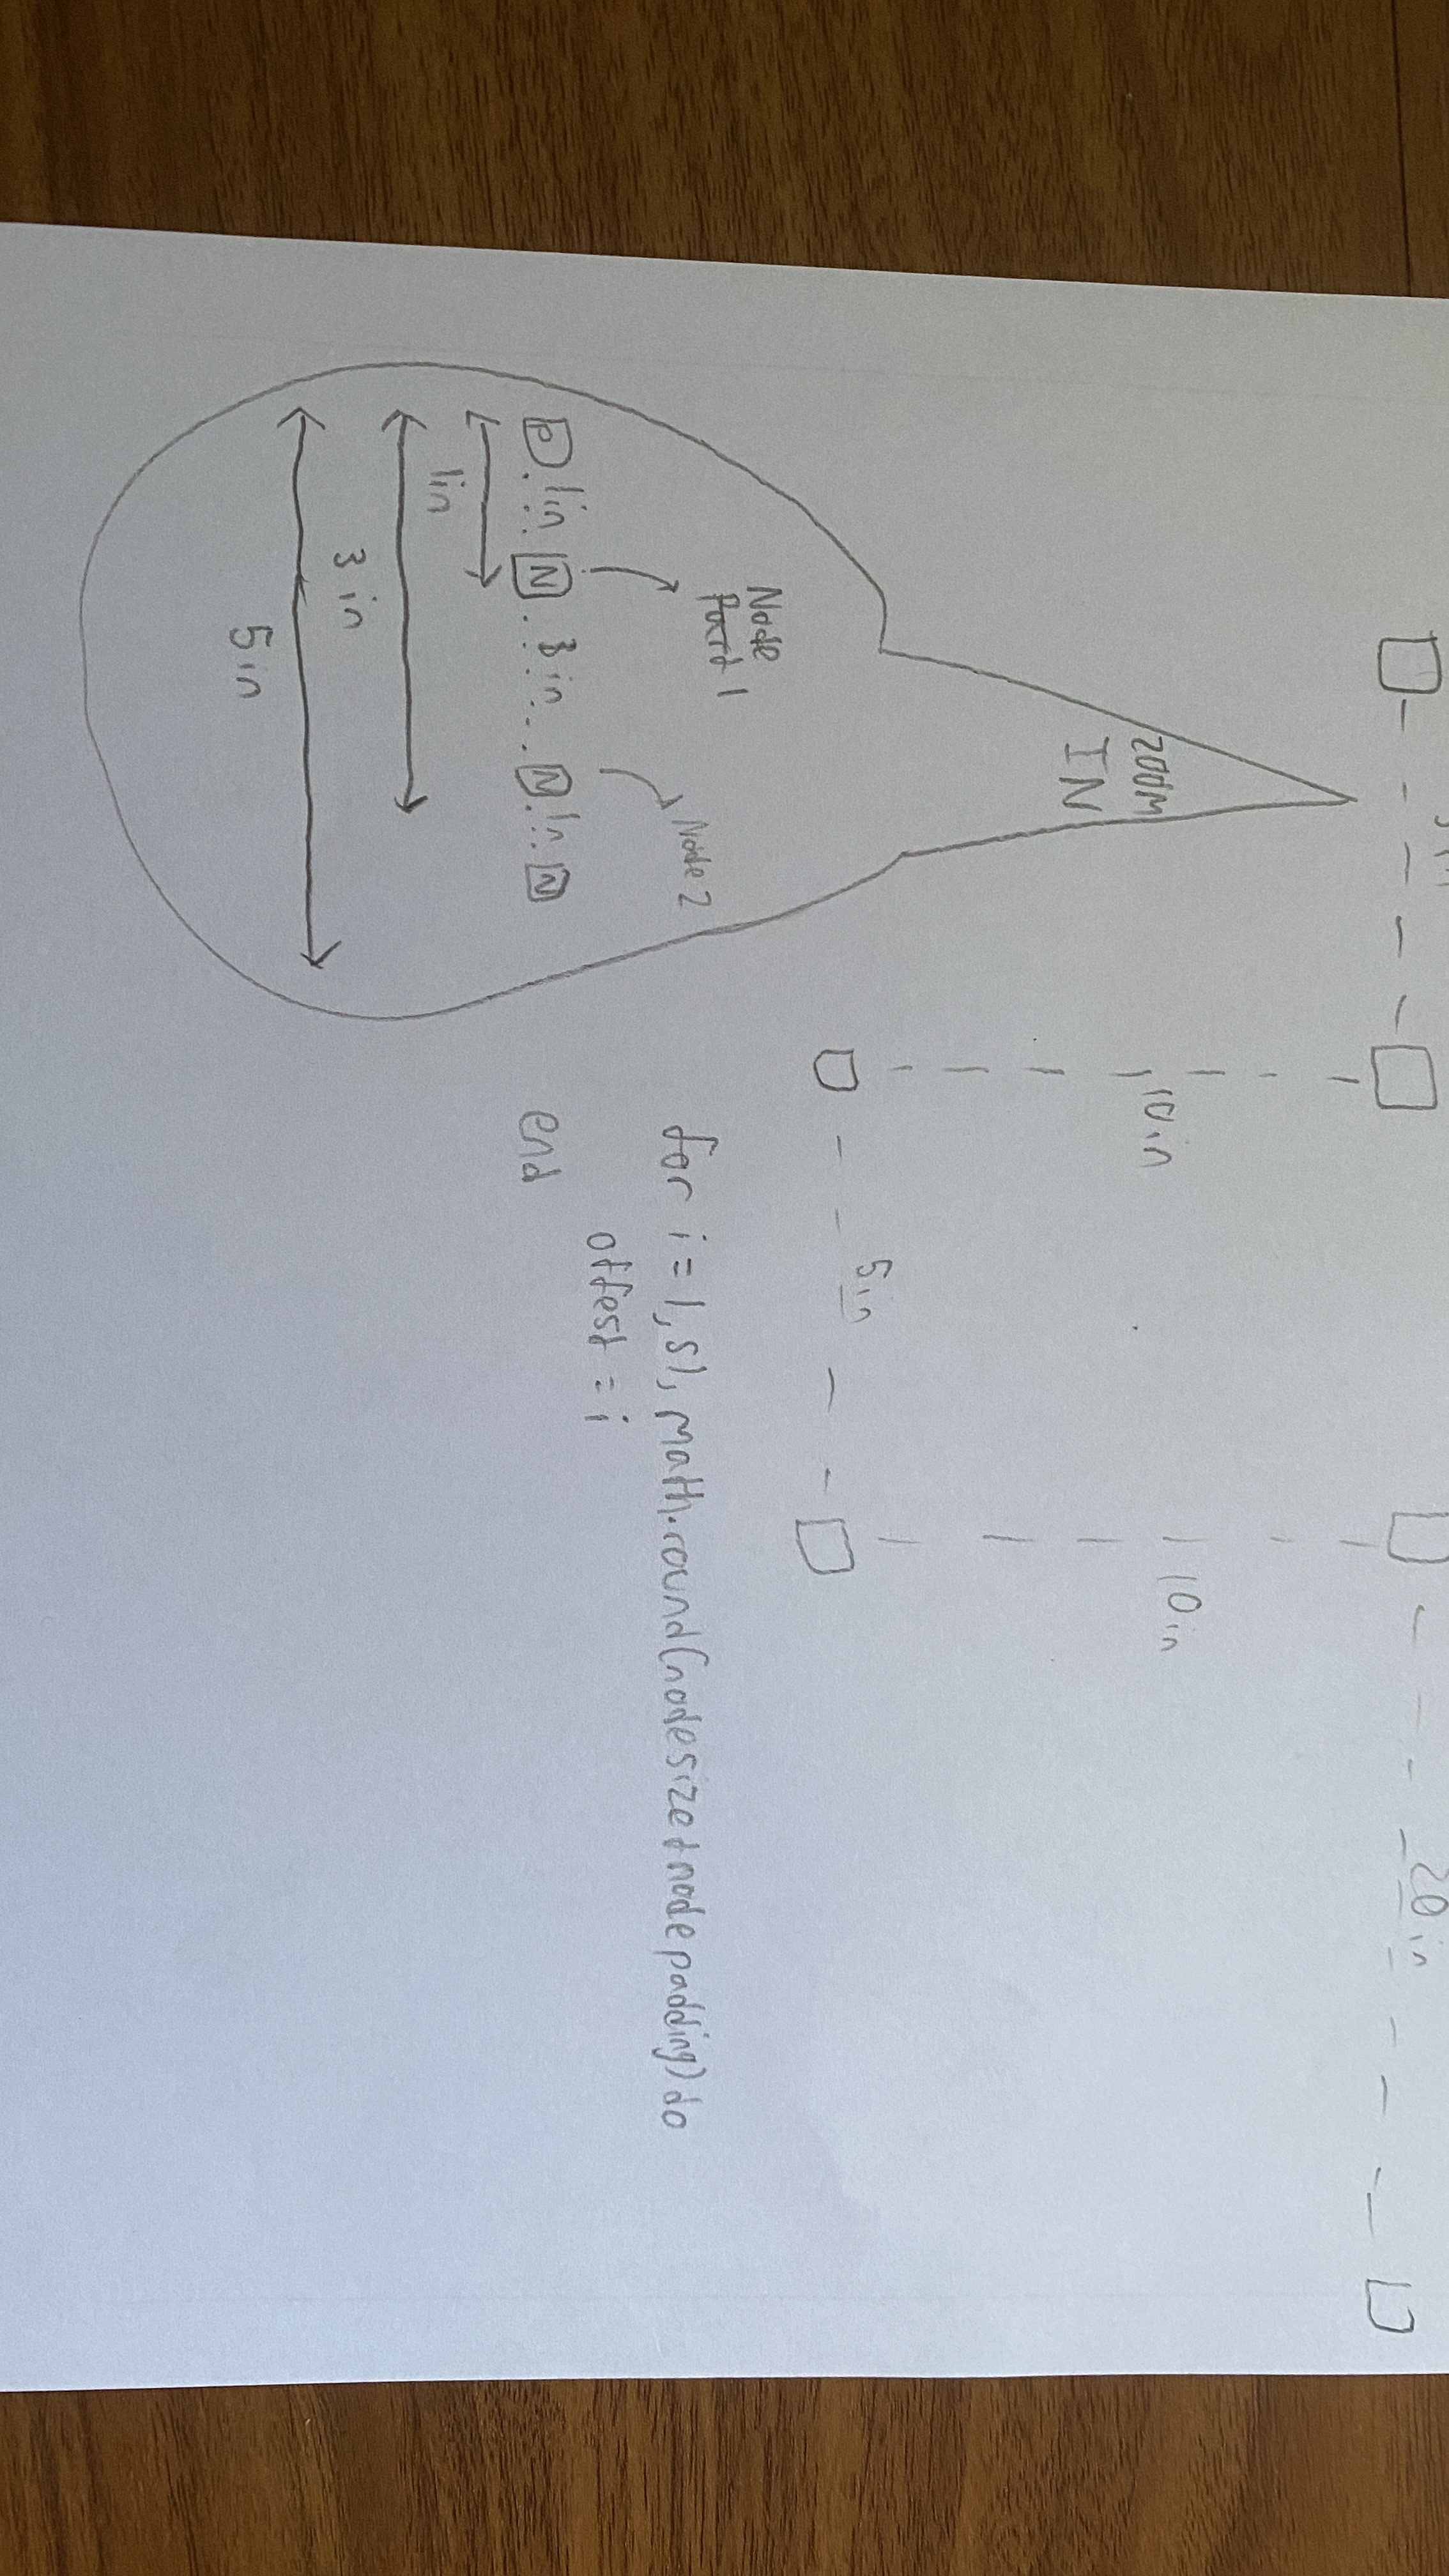 20in
10in
10in
5in
ZOOM
IN
Node
Part 1
Node 2
P 1in N 3in N 1in N
1in
3in
5in
for i = 1, s1, math.round(nodesize+nodepadding) do
offest = i
end